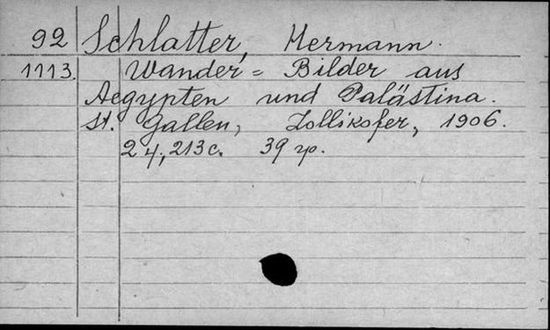 92 Schlatter, Hermann.
1113. Wander = Bilder aus
Aegypten und Palästina.
St. Gallen, Zollikofer, 1906.
24, 213 c. 39 гр.